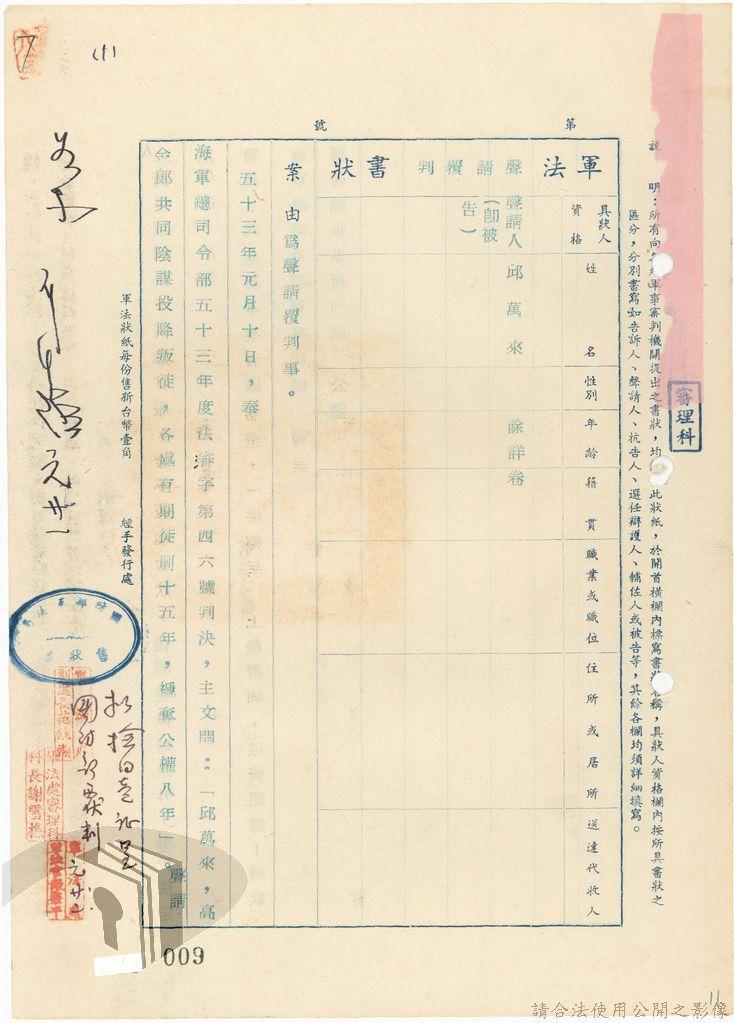 說　明：所有向各級軍事審判機關提出之書狀，均 此狀紙，於開首橫欄內標寫書狀名稱，具狀人資格欄內按所具書狀之
區分，分別書寫如告訴人、聲請人、抗告人、選任辯護人、輔佐人或被告等，其餘各欄均須詳細填寫。
審理科
第　號
軍法　聲請覆判　書狀
具狀人資格　姓名　性別　年齡　籍貫　職業或職位　住所或居所　送達代收人
聲請人（卽被告）　邱萬來　餘詳卷
案由為聲請覆判事。
五十三年元月十日，奉
海軍總司令部五十三年度法審字第四六號判決，主文開：「邱萬來，高
金郎共同陰謀投降叛徒，各處有期徒刑十五年，褫奪公權八年」。聲請
軍法狀紙每份售新台幣壹角　經手發行處
國防部軍法局
售狀
呈
國防部覆判
元廿
軍法處審理科
科長謝雪樵
7
009
11
請合法使用公開之影像